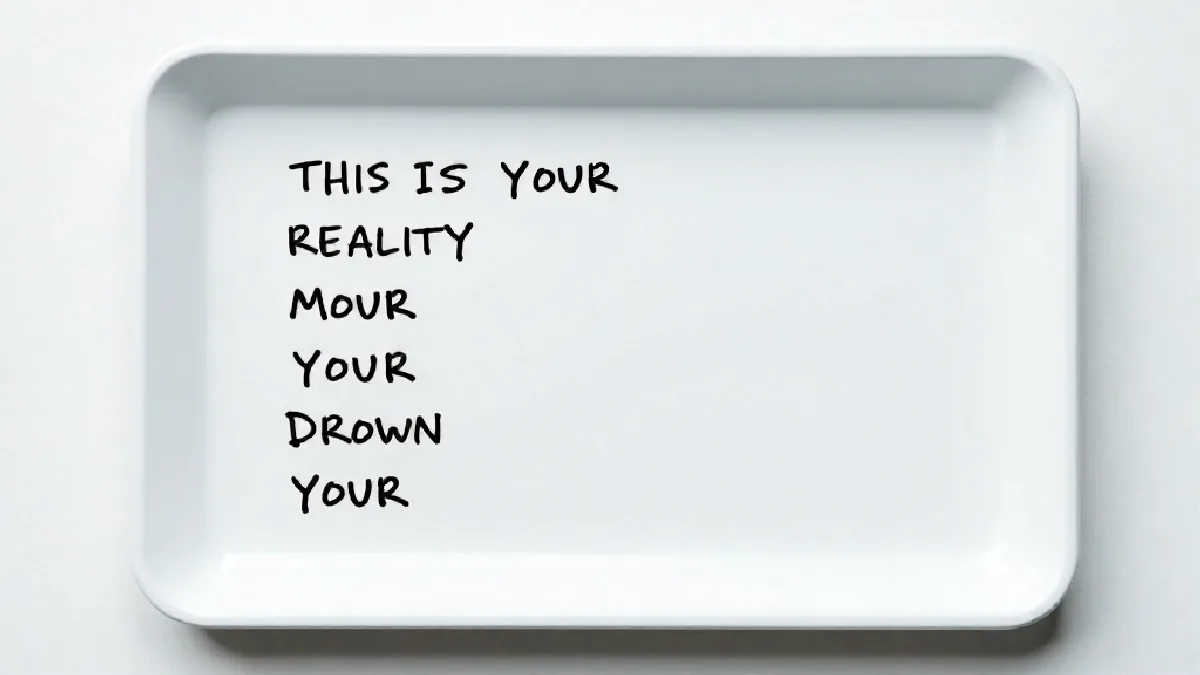 THIS IS YOUR
REALITY
MOUR
YOUR
DROWN
YOUR